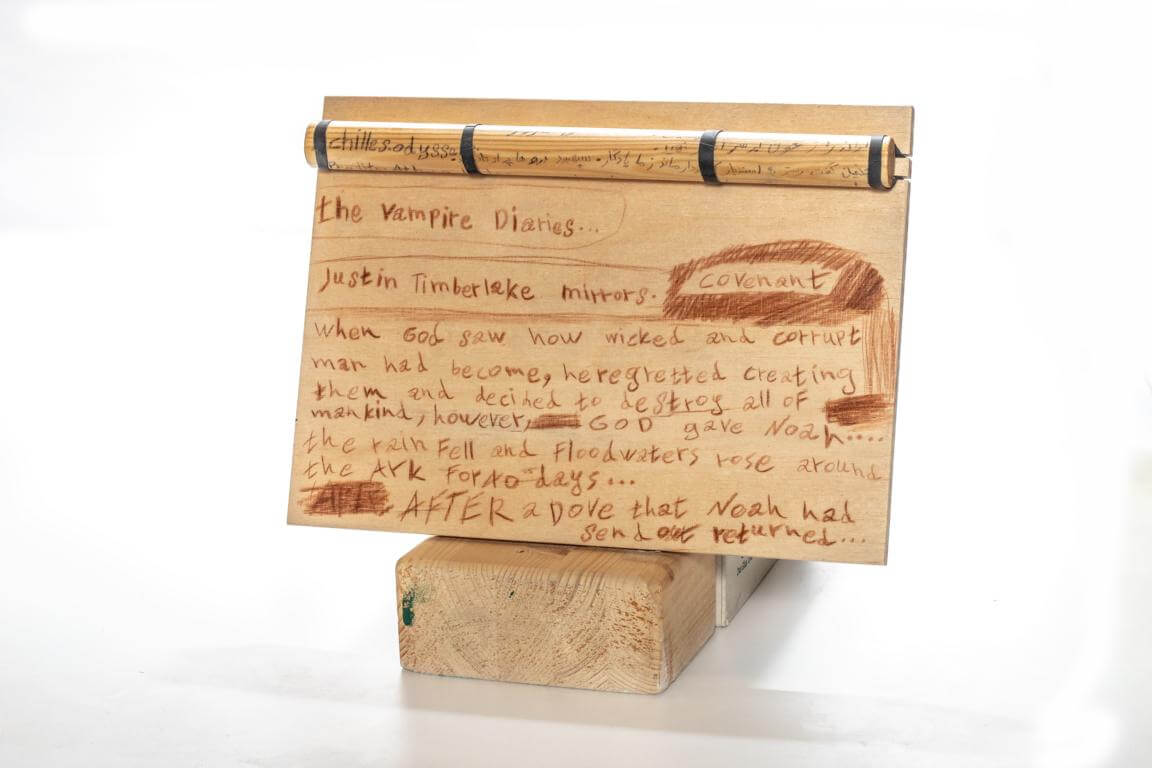 chilles.odysse
the Vampire Diaries...
Justin Timberlake mirrors.
covenant
when God saw how wicked and corrupt
man had become, he regretted creating
them and decided to destroy all of
mankind, however, GOD gave Noah....
the rain Fell and Floodwaters rose around
the ArK For 40 days...
AFTER a Dove that Noah had
send out returned...